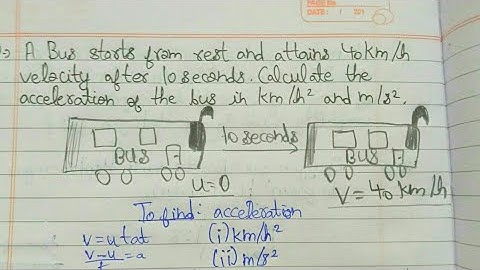 PAGE No.
DATE: / /201
A Bus starts from rest and attains 40km/h
velocity after 10 seconds. Calculate the
acceleration of the bus in km/h² and m/s².
BUS
10 seconds
BUS
u=0
V=40 km/h
To find: acceleration
v=u+at
(i) km/h²
v-u/t=a
(ii) m/s²